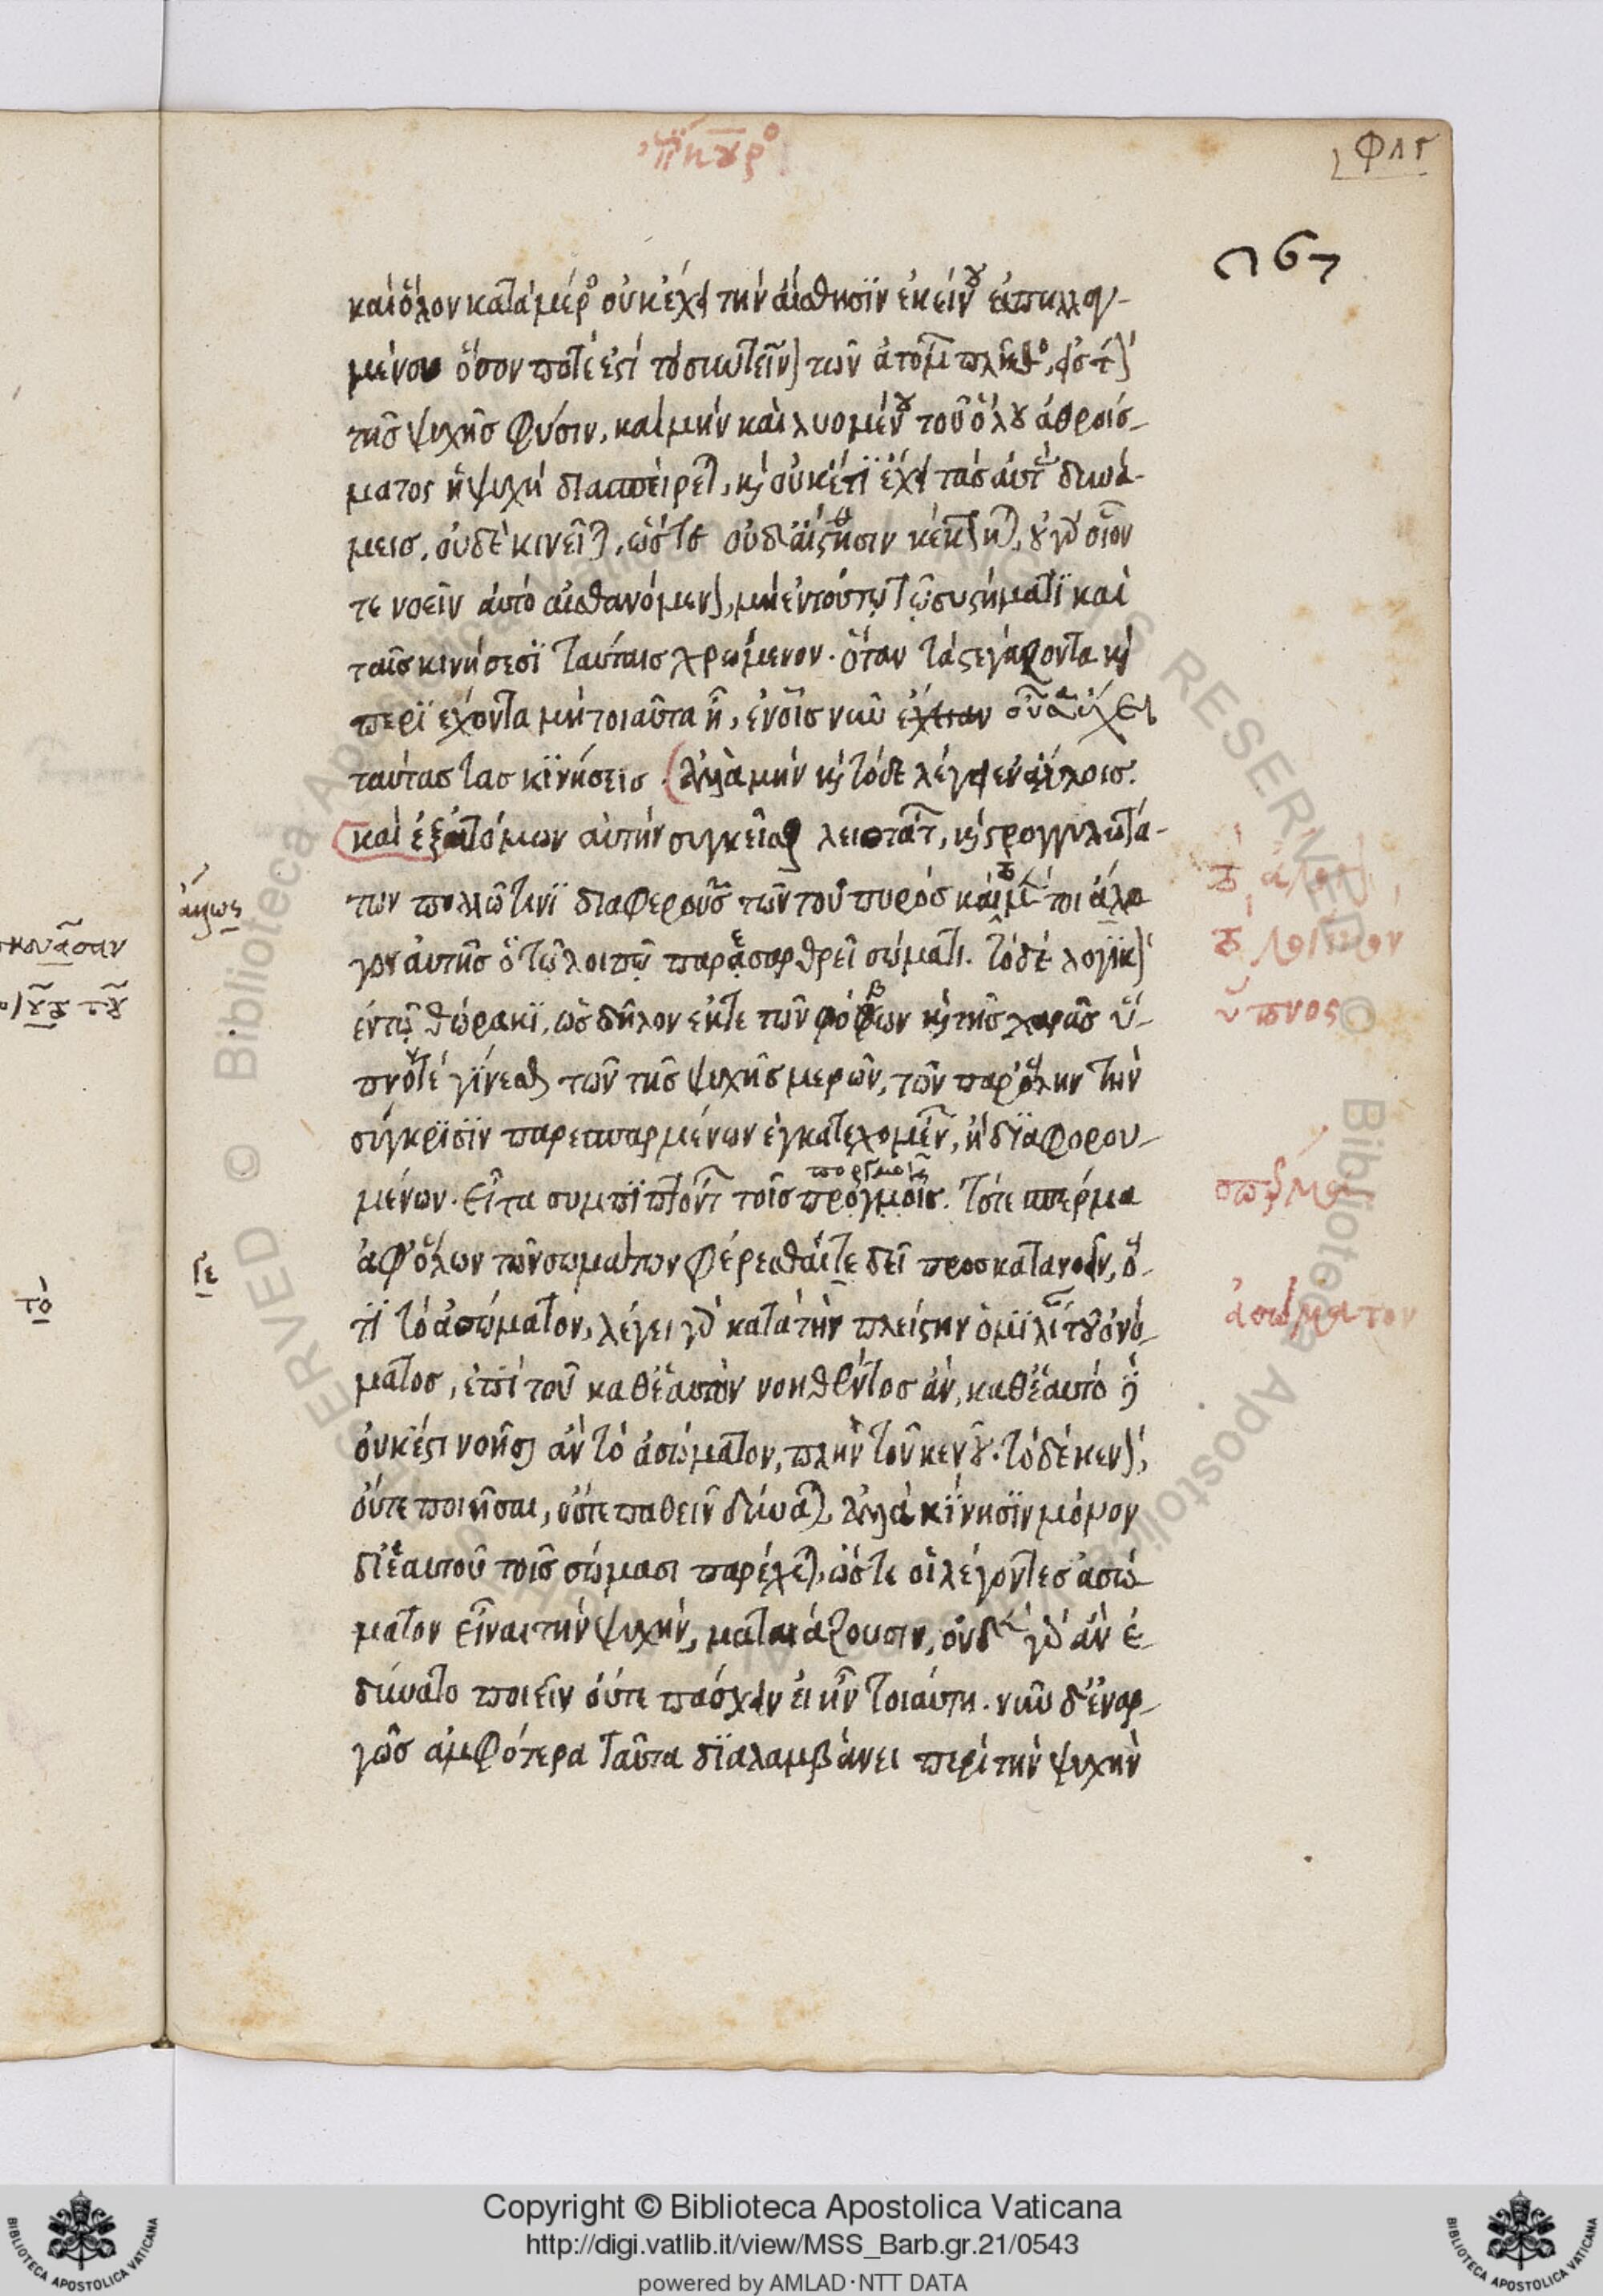 ἐπίκουρος
φλς
767
καὶ ὅλον κατὰ μέρος οὐκ ἔχει τὴν αἴσθησιν ἐκείνου ἀπηλλαγ-
μένου ὅσον ποτέ ἐστὶ τὸ συντεῖνον τῶν ἀτόμων πλῆθος, εἰς τὴν
τῆς ψυχῆς φύσιν, καὶ μὴν καὶ λυομένου τοῦ ὅλου ἀθροίσ-
ματος ἡ ψυχὴ διασπείρεται, καὶ οὐκέτι ἔχει τὰς αὐτὰς δυνά-
μεις, οὐδὲ κινεῖται, ὥστε οὐδ' αἴσθησιν κέκτηται, οὐ γὰρ οἷόν
τε νοεῖν αὐτὸ αἰσθανόμενον, μὴ ἐν τούτῳ τῷ συστήματι καὶ
ταῖς κινήσεσι ταύταις χρώμενον. ὅταν τὰ στεγάζοντα καὶ
περιέχοντα μὴ τοιαῦτα ᾖ, ἐν οἷς νῦν οὖσα ἔχει
ταύτας τὰς κινήσεις. ἀλλὰ μὴν καὶ τόδε λέγει ἐν ἄλλοις.
καὶ ἐξ ἀτόμων αὐτὴν συγκεῖσθαι λειοτάτων, καὶ στρογγυλωτά-
των πολλῷ τινι διαφερουσῶν τῶν τοῦ πυρός καὶ τὸ μέν τι ἄλο
γον αὐτῆς ὃ τῷ λοιπῷ παρεσπαρθρεῖ σώματι. τὸ δὲ λογικὸν
ἐν τῷ θώρακι, ὡς δῆλον ἔκ τε τῶν φόβων καὶ τῆς χαρᾶς ὕ-
πνον τέ γίνεσθαι τῶν τῆς ψυχῆς μερῶν, τῶν παρ' ὅλην τὴν
σύγκρισιν παρεσπαρμένων ἐγκατεχομένων, ἢ διαφορου-
πορεγμοῖς
μένων. εἶτα συμπιπτόντων τοῖς προγμοῖς. τότε σπέρμα
ἀφ' ὅλων τῶν σωμάτων φέρεσθαί τε δεῖ προσκατανοεῖν, ὅ-
τι τὸ ἀσώματον, λέγει γὰρ κατὰ τὴν πλείστην ὁμιλίαν τοῦ ὀνό-
ματος, ἐπὶ τοῦ καθ' ἑαυτὸν νοηθέντος ἄν, καθ' ἑαυτὸ δὲ
οὐκ ἔστι νοῆσαι ἂν τὸ ἀσώματον, πλὴν τοῦ κενοῦ. τὸ δὲ κενὸν,
οὔτε ποιῆσαι, οὔτε παθεῖν δύναται, ἀλλὰ κίνησιν μόνον
δι' ἑαυτοῦ τοῖς σώμασι παρέχεται, ὥστε οἱ λέγοντες ἀσώ-
ματον εἶναι τὴν ψυχὴν, ματαιάζουσιν, οὐδὲν γὰρ ἂν ἐ-
δύνατο ποιεῖν οὔτε πάσχειν εἰ ἦν τοιαύτη. νῦν δ' ἐναρ-
γῶς ἀμφότερα ταῦτα διαλαμβάνει περὶ τὴν ψυχὴν
ἄλλως
τε
τὸ ἄλογον
τὸ λογικὸν
ὕπνος
σπέρμα
ἀσώματον
σκουᾶσαν
τὸ
Copyright © Biblioteca Apostolica Vaticana
http://digi.vatlib.it/view/MSS_Barb.gr.21/0543
powered by AMLAD·NTT DATA